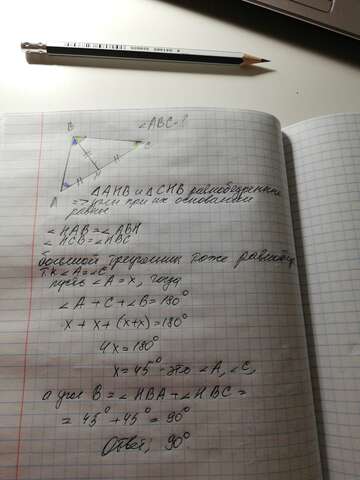 ∠ABC-?
B
C
H
A
△AHB и △CHB равнобедренные
=> углы при их основании
равны
∠HAB=∠ABH
∠HCB=∠HBC
большой треугольник тоже равнобед
т.к ∠A=∠C,
пусть ∠A=x, тогда
∠A+C+∠B=180°
x+x+(x+x)=180°
4x=180°
x=45°-это ∠A,∠C,
а угол B=∠HBA+∠HBC=
=45°+45°=90°
Ответ: 90°